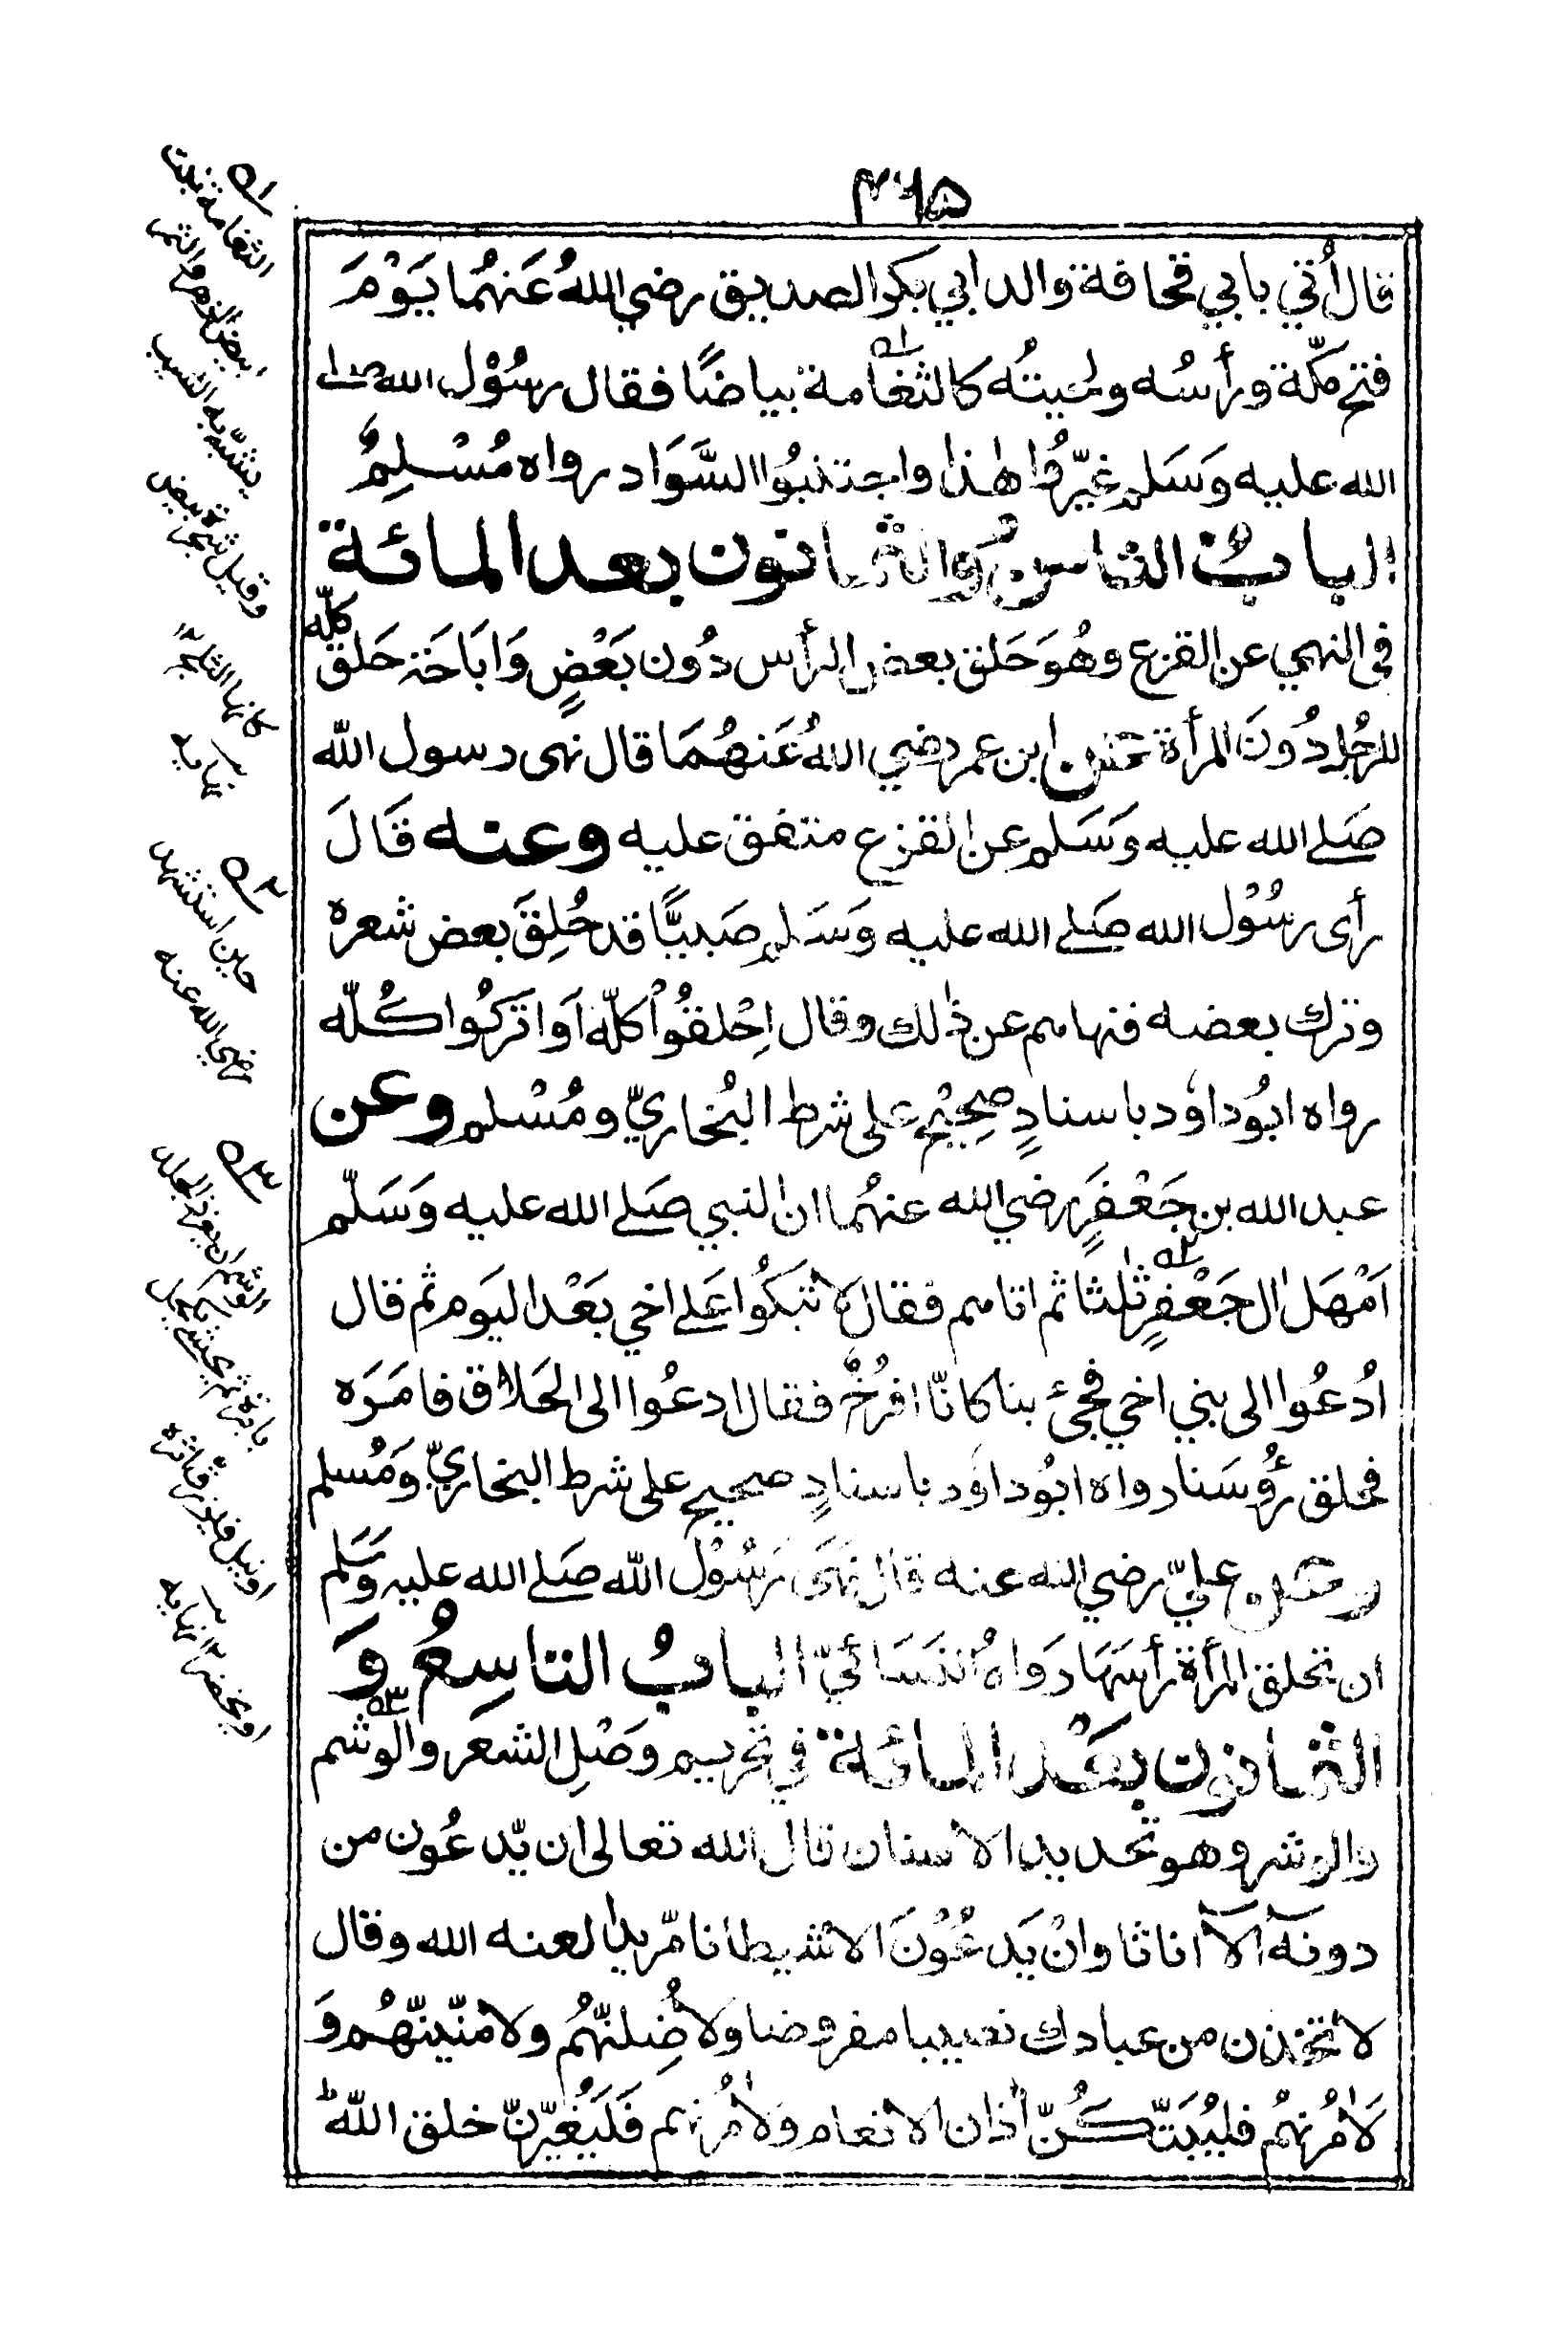 ۴۶۵
قال أُتي بابي قحافة والد ابي بكر الصديق رضي اللهُ عَنهُما يَوْمَ
فتح مكّة ورأسُه ولحيتُه كالثغامة بياضًا فقال رسُوْل الله صلے
الله عليه وَسَلم غيّرُوا هٰذا واجتنبُوا السَّوَاد رواه مُسْلِمٌ
البابُ الثامنُ والثمانون بعد المائة
فى النهي عن القزع وهُوَ حَلق بعض الرأس دُون بَعْضٍ وَاِبَاحَة حَلق كلّه
للرجُل دُونَ المرأة عن ابن عمر رضي اللهُ عَنهُمَا قال نهى رسول الله
صَلے الله عليه وَسَلم عن القزع متفق عليه وعنه قَالَ
رأى رسُوْل الله صَلے الله عليه وَسَلم صَبيًّا قد حُلِقَ بعض شعره
وترك بعضه فنهاهم عن ذٰلك وقال اِحْلقُوْا كلّه اَو اترَكُوا كُلّه
رواه ابُوداوٗد باسنادٍ صحِيْحٍ على شرط البُخاريّ ومُسْلم وعن
عبد الله بن جَعْفَرٍ رضي الله عنهُما ان النبي صَلے الله عليه وَسَلّم
اَمْهَل اٰل جَعْفرٍ ثلٰثا ثم اتاهم فقال لا تبَكُوا عَلے اخي بَعْد اليَوم ثم قال
ادُعُوا الى بني اخي فجئ بنا كانّا افرُخٌ فقال ادعُوا الى الحَلاق فامَرَه
فحلق رؤُسَنا رواه ابُوداوٗد باسنادٍ صحيح على شرط البخاريّ وَمُسلم
وعن عليّ رضي الله عنه قال نَهَى رَسُوْل الله صَلے الله عليه وَسَلم
ان تحلق المرأة رأسَهَا رَوَاهُ النسَائيّ البابُ التاسِعُ وَ
الثمانون بعْد المائة في تحريم وَصْلِ الشعَر والوشم
والوشر وهو تحديد الاسنان قال الله تعالى ان يّدعُون من
دونهٓ الآ اناثا وانْ يَدعُوْنَ الا شيطٰنا مّريدا لعنه الله وقال
لاتخذن من عبادك نصيبا مفروضا ولاُضِلنّهُم ولامنّينّهُم وَ
لاٰمُرنهُم فليُبَتّكُنّ اٰذان الانعام ولاٰمُرنهم فَليُغَيّرنّ خلق الله ط
ا٥
الثغامة نبت
ابيض الزهر والثمر
يشبّه به الشيب
وقيل شجرة تبيض
كانها الثلج ١٢
نهايه
٢٥
حين استشهد
رضي الله عنه
٣٥
الوشم ان يغرز الجلد
بابرة ثم يحشى بكحل
او نيل فيزرق اثره
او يخضر ١٢ نهايه